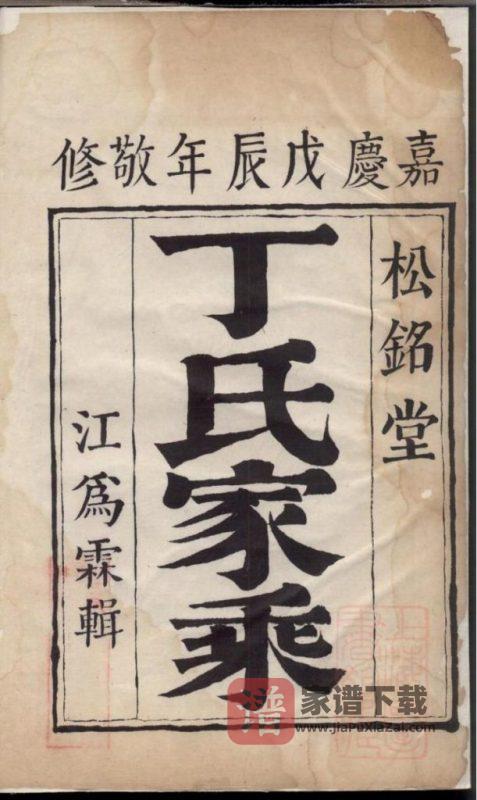 嘉慶戊辰年敬修
松銘堂
丁氏家乘
江爲霖輯
譜
家谱下载
www.jiaPuXiaZai.com